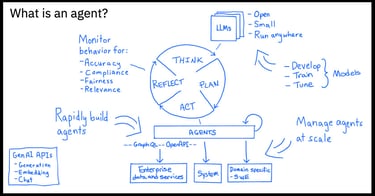 What is an agent?
Monitor
behavior for:
- Accuracy
- Compliance
- Fairness
- Relevance
THINK
REFLECT
PLAN
ACT
LLMs
- Open
- Small
- Run anywhere
- Develop
- Train
- Tune
Models
Rapidly build
agents
AGENTS
Manage agents
at scale
GraphQL
OpenAPI
GenAI APIs
- Generation
- Embedding
- Chat
Enterprise
data and services
System
Domain specific
- SWE